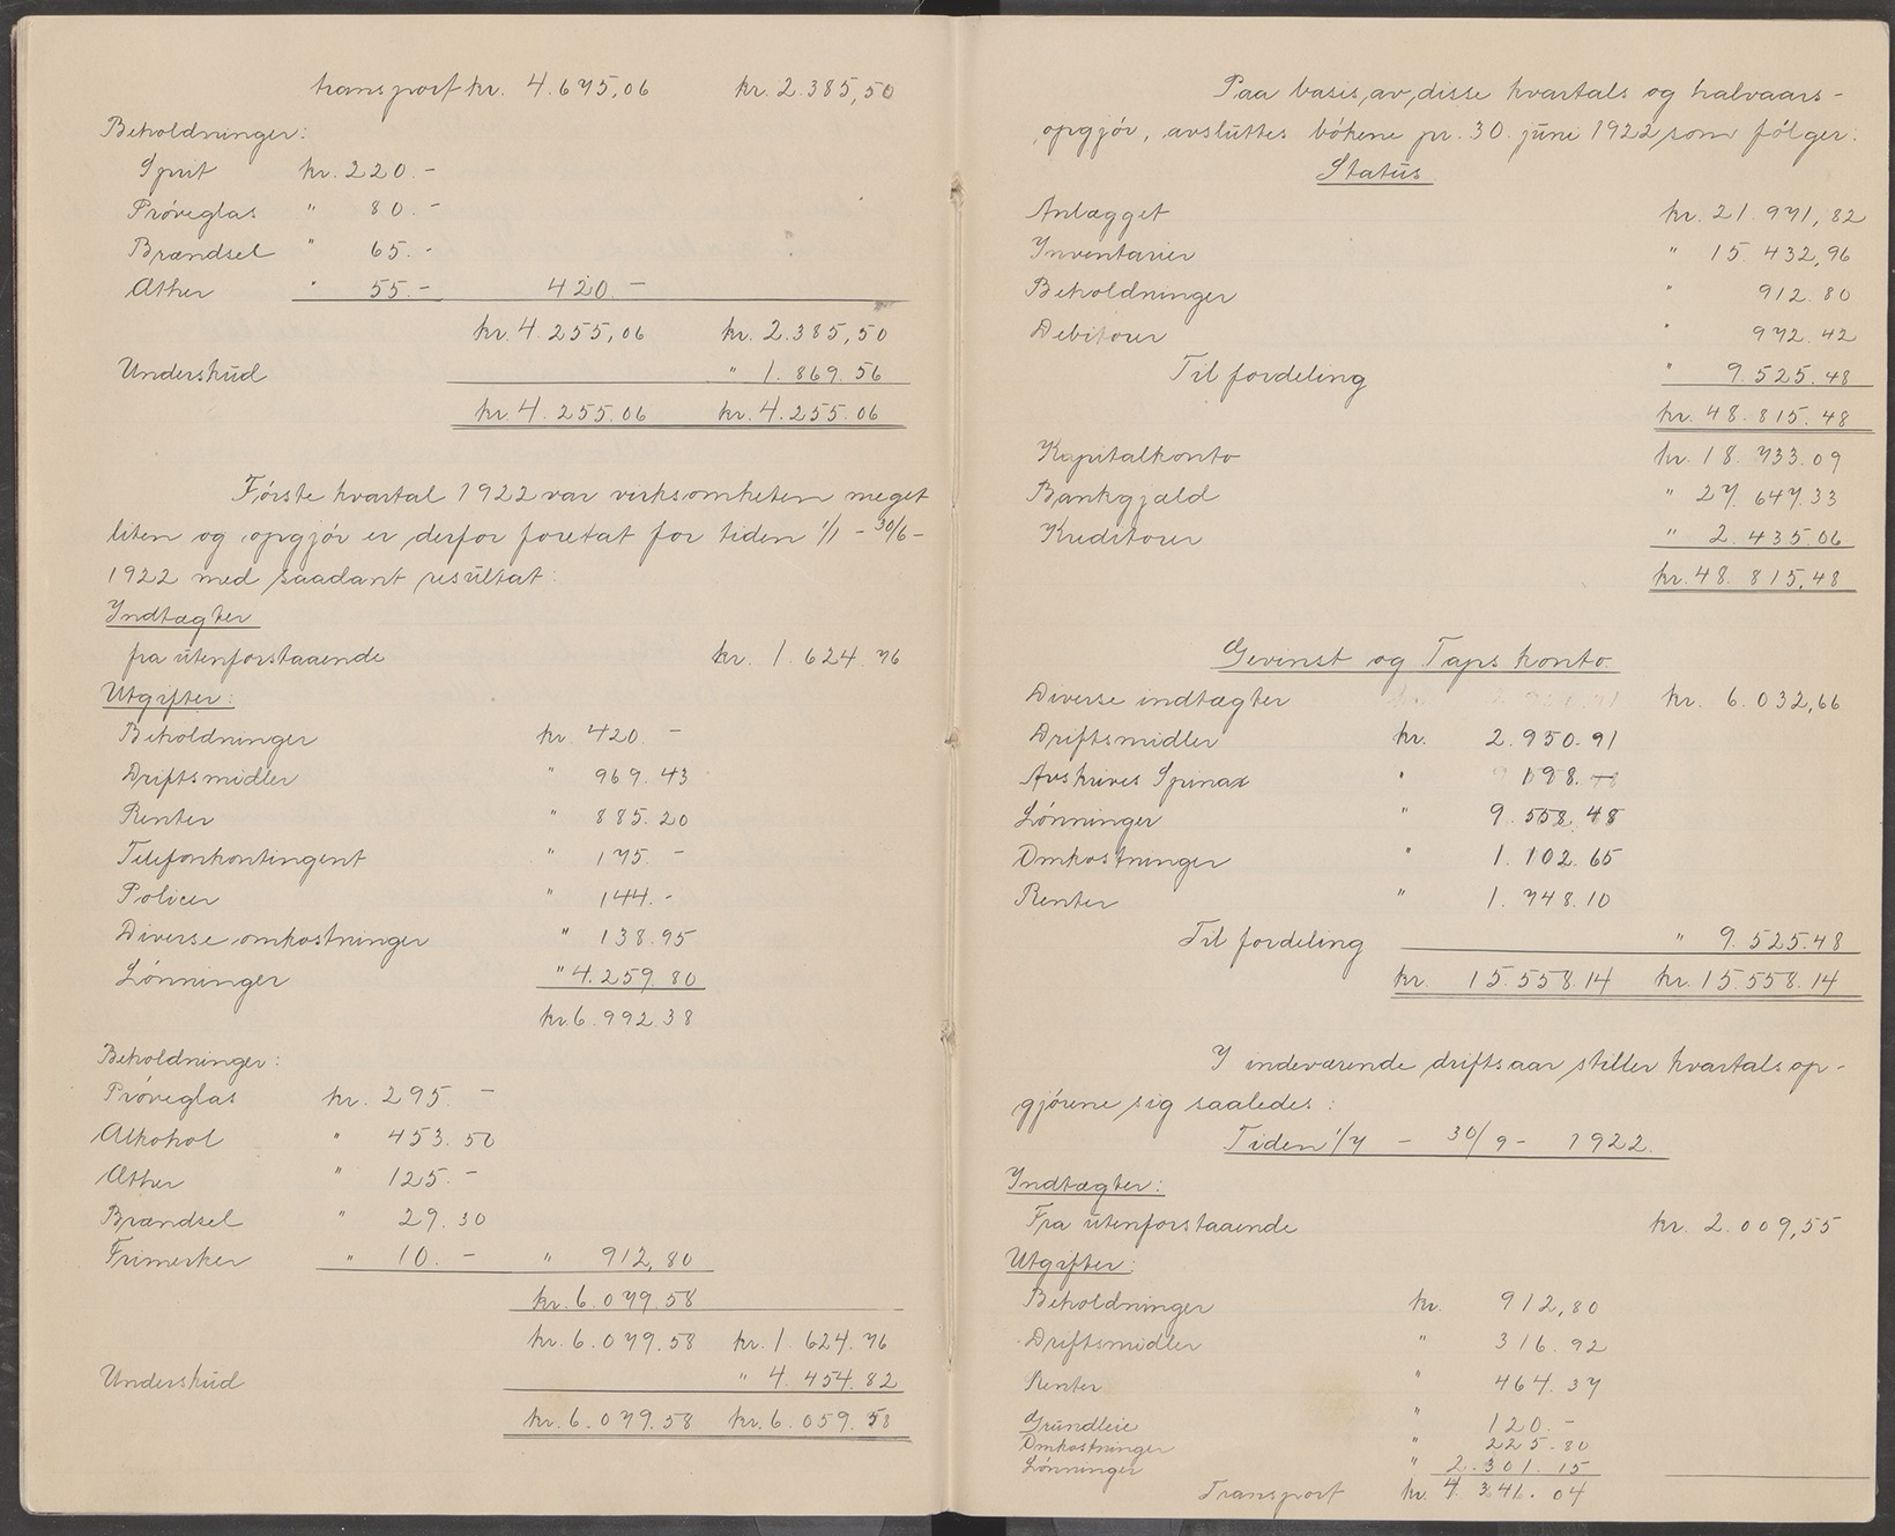 transport kr. 4.675,06 kr. 2.385,50
Beholdninger:
Sprit kr. 220.-
Prøveglas " 80.-
Brændsel " 65.-
Æther " 55.- 420.-
kr. 4 255,06 kr. 2.385,50
Underskud " 1.869.56
kr. 4.255.06 kr. 4.255.06
Første kvartal 1922 var virksomheten meget
liten og opgjør er derfor foretat for tiden 1/1 - 30/6 -
1922 med saadant resultat:
Indtægter
fra utenforstaaende kr. 1.624.76
Utgifter:
Beholdninger kr. 420. -
Driftsmidler " 969.43
Renter " 885.20
Telefonkontingent " 175. -
Policer " 144. -
Diverse omkostninger " 138.95
Lønninger " 4.259.80
kr. 6.992.38
Beholdninger:
Prøveglas kr. 295. -
Alkohol " 453.50
Æther " 125. -
Brændsel " 29.30
Frimerker " 10. - " 912,80
kr. 6.079.58
kr. 6.079.58 kr. 1.624.76
Underskud " 4.454.82
kr. 6.079.58 kr. 6.059.58
Paa basis av disse kvartals og halvaars-
opgjør, avsluttes bøkene pr. 30. juni 1922 som følger:
Status
Anlægget kr. 21.971,82
Inventarier " 15.432,96
Beholdninger " 912.80
Debitorer " 972.42
Til fordeling " 9.525.48
kr. 48.815.48
Kapitalkonto kr. 18.733.09
Bankgjæld " 27.647.33
Kreditorer " 2.435.06
kr. 48.815,48
Gevinst og Taps konto
Diverse indtægter kr. 6.032,66
Driftsmidler kr. 2.950.91
Avskrives Spinax " 198. -
Lønninger " 9.558.48
Omkostninger " 1.102.65
Renter " 1.748.10
Til fordeling " 9.525.48
kr. 15.558.14 kr. 15.558.14
I indeværende driftsaar stiller kvartalsop-
gjørene sig saaledes:
Tiden 1/7 - 30/9 - 1922.
Indtægter:
Fra utenforstaaende kr. 2.009,55
Utgifter:
Beholdninger kr. 912,80
Driftsmidler " 316.92
Renter " 464.37
Grundleie " 120.-
Omkostninger " 225.80
Lønninger " 2.301.15
Transport kr. 4.341.04